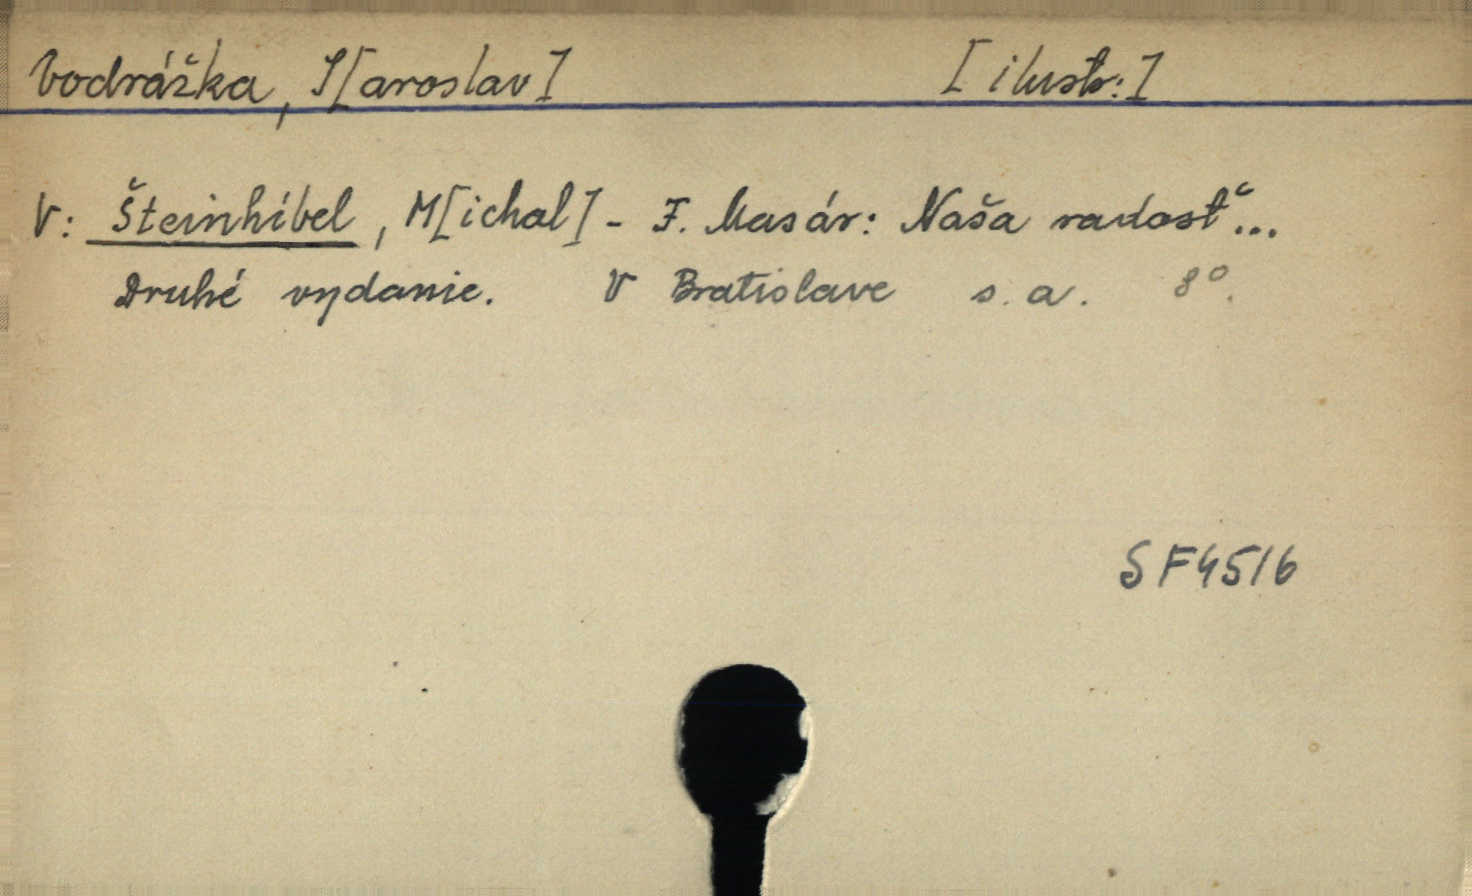 Vodrážka, J[aroslav] [ilustr:]
V: Šteinhíbel, M[ichal] - F. Masár: Naša radosť...
Druhé vydanie. V Bratislave s.a. 8°.
SF4516